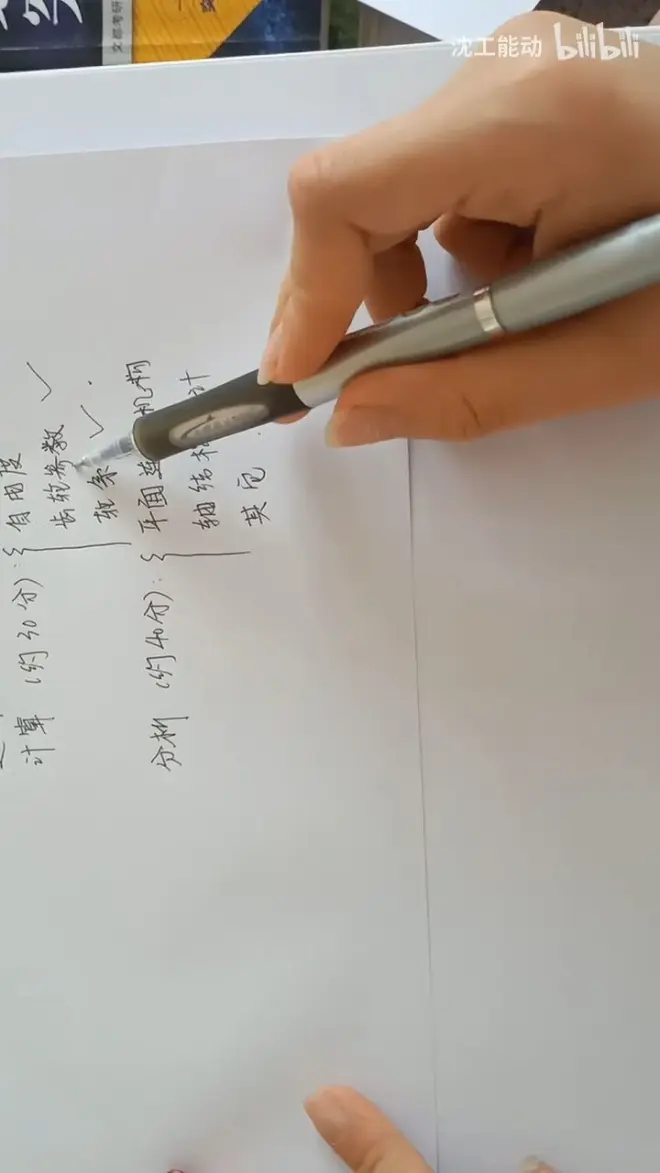 沈工能动 bilibili
文都考研
计算（约30分）：{ 自由度
齿轮参数 ✓
轮系 ✓
分析（约40分）：{ 平面连 机构
轴结构 计
其它.